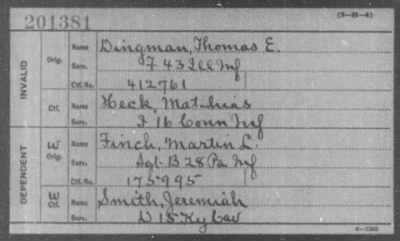 201381
(3-28-4)
INVALID
Orig. Name Dingman, Thomas E.
Serv. F 43 Ill Inf
Ctf. No. 412761
Ctf. Name Heck, Mathias
Serv. I 16 Conn Inf
DEPENDENT
W Orig. Name Finch, Martin L.
Serv. Sgt. B 28 Pa Inf
Ctf. No. 175995
W Ctf. Name Smith, Jeremiah
Serv. D 15 Ky Cav